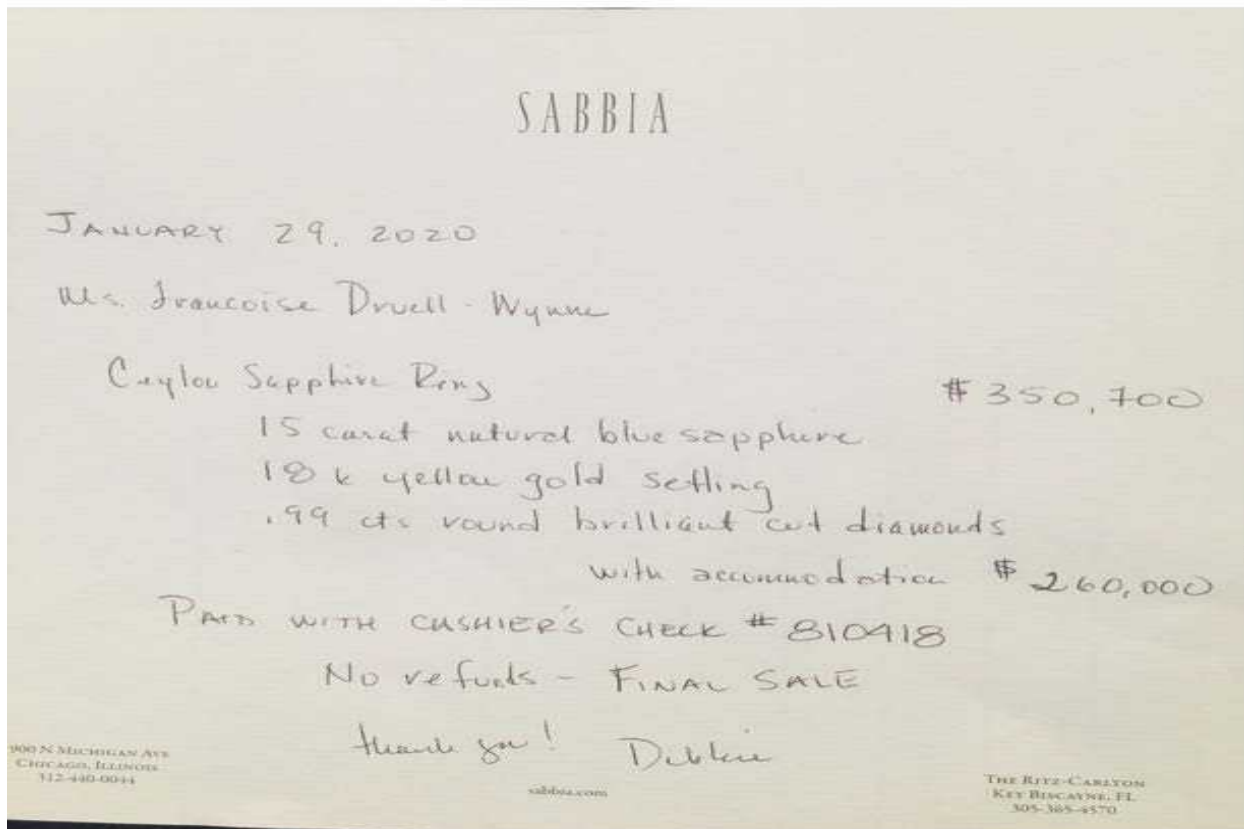 SABBIA
JANUARY 29, 2020
Ms. Francoise Druell-Wynne
Ceylon Sapphire Ring $350,700
15 carat natural blue sapphire
18 k yellow gold setting
.99 cts round brilliant cut diamonds
with accommodation $260,000
PAID WITH CASHIER'S CHECK #810418
No refunds - FINAL SALE
thank you! Debbie
900 N MICHIGAN AVE
CHICAGO, ILLINOIS
312-440-0044
sabbia.com
THE RITZ-CARLTON
KEY BISCAYNE, FL
305-365-4570